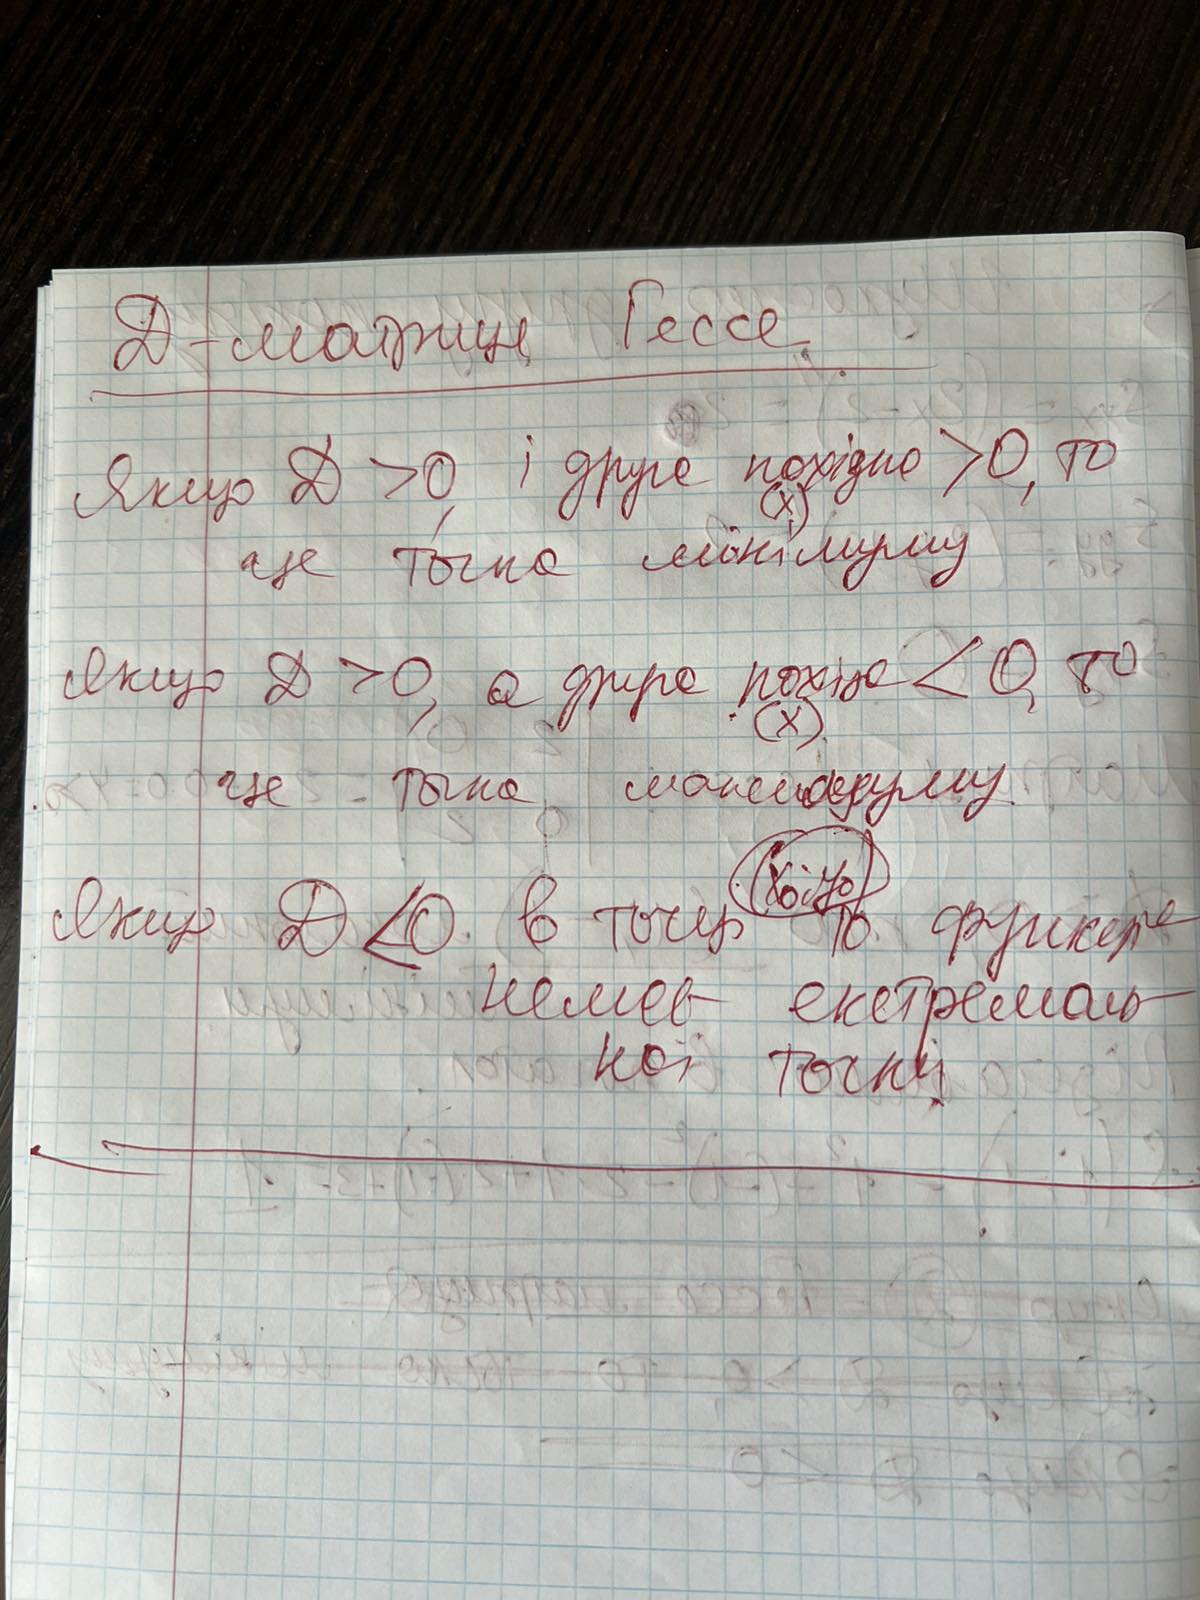 D - матриця Гессе
Якщо D > 0, і друга похідна > 0, то
(x)
це точка мінімуму
Якщо D > 0, а друга похідна < 0, то
(x)
це точка максимуму
(x₀; y₀)
Якщо D < 0 в точці то функція
немає екстремаль-
ної точки